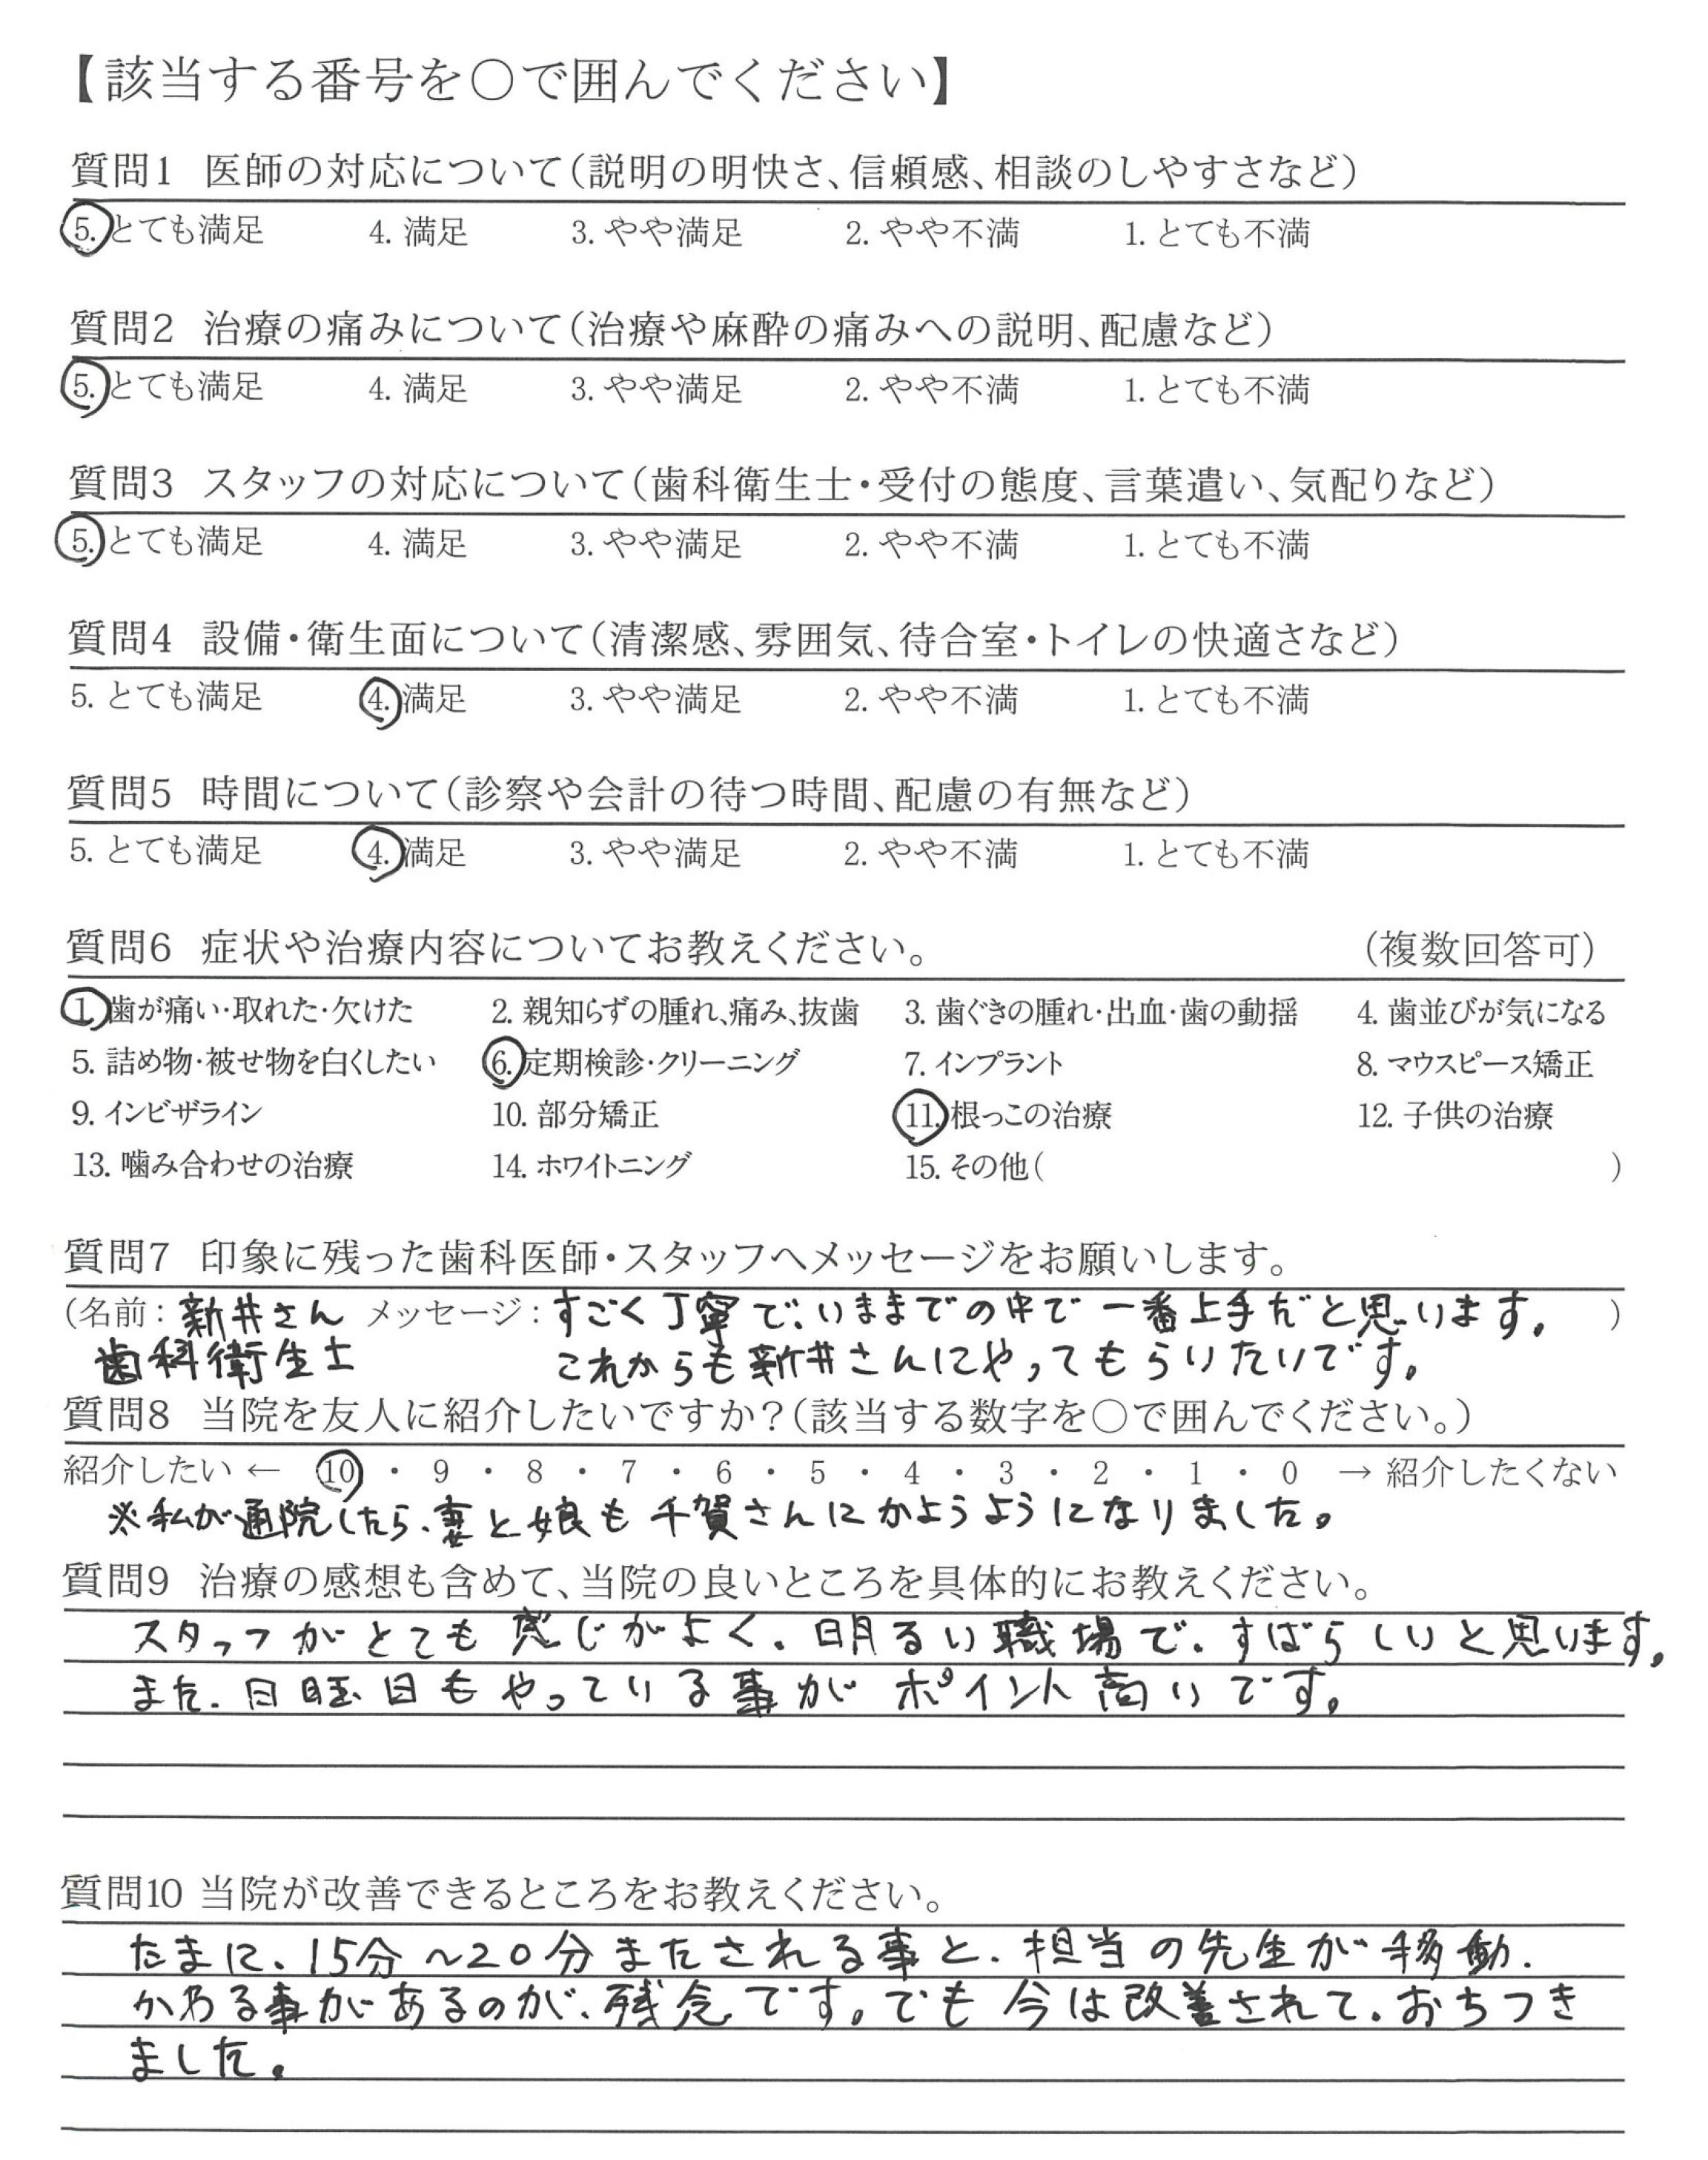 【該当する番号を〇で囲んでください】
質問1 医師の対応について（説明の明快さ、信頼感、相談のしやすさなど）
5. とても満足 4. 満足 3. やや満足 2. やや不満 1. とても不満
質問2 治療の痛みについて（治療や麻酔の痛みへの説明、配慮など）
5. とても満足 4. 満足 3. やや満足 2. やや不満 1. とても不満
質問3 スタッフの対応について（歯科衛生士・受付の態度、言葉遣い、気配りなど）
5. とても満足 4. 満足 3. やや満足 2. やや不満 1. とても不満
質問4 設備・衛生面について（清潔感、雰囲気、待合室・トイレの快適さなど）
5. とても満足 4. 満足 3. やや満足 2. やや不満 1. とても不満
質問5 時間について（診察や会計の待つ時間、配慮の有無など）
5. とても満足 4. 満足 3. やや満足 2. やや不満 1. とても不満
質問6 症状や治療内容についてお教えください。 （複数回答可）
1. 歯が痛い・取れた・欠けた 2. 親知らずの腫れ、痛み、抜歯 3. 歯ぐきの腫れ・出血・歯の動揺 4. 歯並びが気になる
5. 詰め物・被せ物を白くしたい 6. 定期検診・クリーニング 7. インプラント 8. マウスピース矯正
9. インビザライン 10. 部分矯正 11. 根っこの治療 12. 子供の治療
13. 噛み合わせの治療 14. ホワイトニング 15. その他（ ）
質問7 印象に残った歯科医師・スタッフへメッセージをお願いします。
（名前：新井さん メッセージ：すごく丁寧で、いままでの中で一番上手だと思います。 ）
歯科衛生士 これからも新井さんにやってもらいたいです。
質問8 当院を友人に紹介したいですか？（該当する数字を〇で囲んでください。）
紹介したい ← 10 ・ 9 ・ 8 ・ 7 ・ 6 ・ 5 ・ 4 ・ 3 ・ 2 ・ 1 ・ 0 → 紹介したくない
※私が通院したら、妻と娘も千賀さんにかようようになりました。
質問9 治療の感想も含めて、当院の良いところを具体的にお教えください。
スタッフがとても感じがよく、明るい職場で、すばらしいと思います。
また、日曜日もやっている事がポイント高いです。
質問10 当院が改善できるところをお教えください。
たまに、15分～20分またされる事と、担当の先生が移動、
かわる事があるのが、残念です。でも今は改善されて、おちつき
ました。